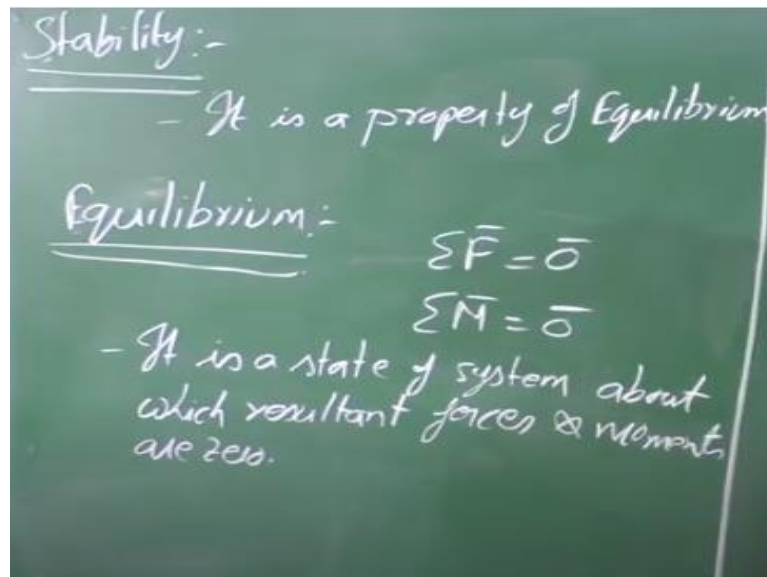 Stability:-
- It is a property of Equilibrium
Equilibrium:-
ΣF̄ = ō
ΣM̄ = ō
- It is a state of system about
which resultant forces & moments
are zero.